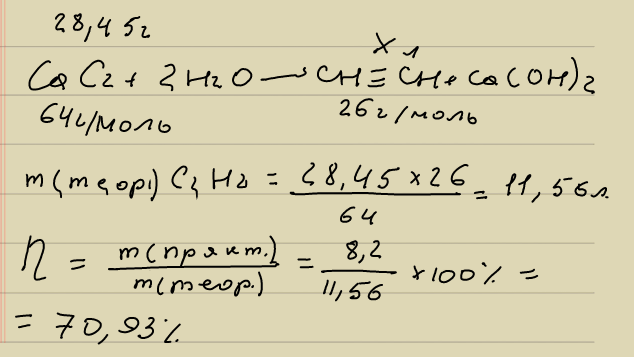 28,45г
x л
CaC2 + 2H2O → CH≡CH + Ca(OH)2
64г/моль 26г/моль
m(теор.) C2H2 = 28,45 × 26 / 64 = 11,56л.
η = m(практ.) / m(теор.) = 8,2 / 11,56 × 100% =
= 70,93%